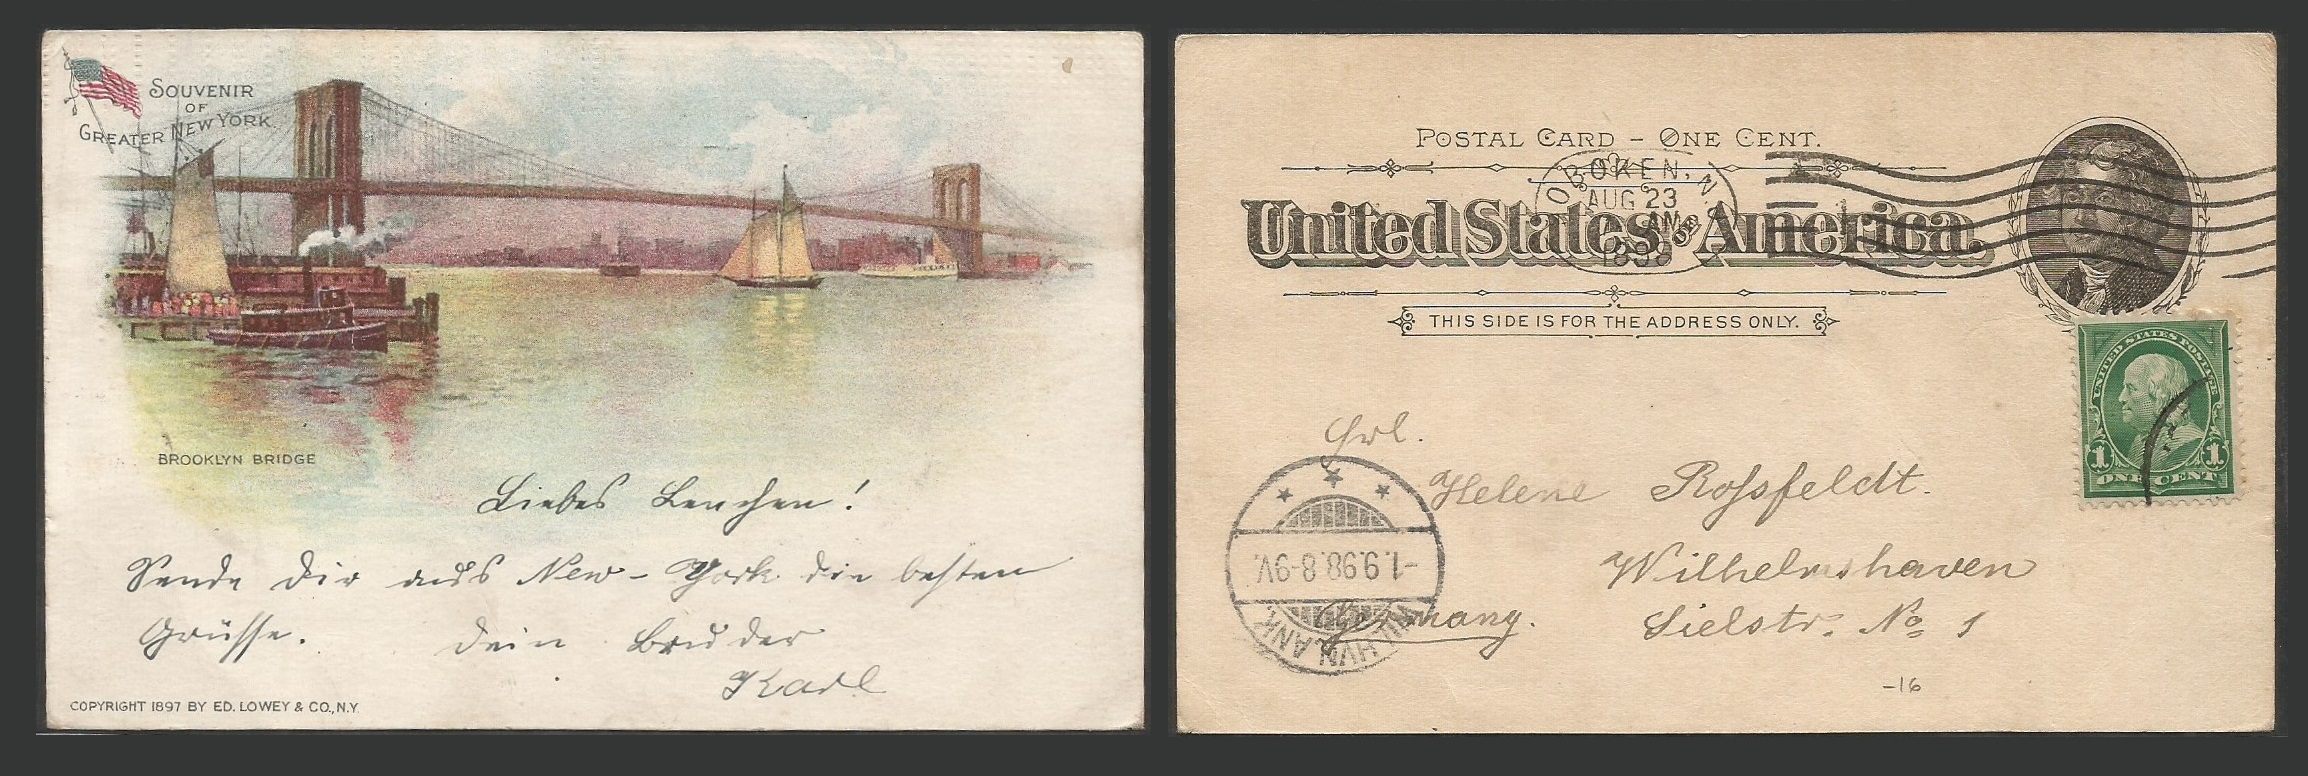 SOUVENIR
OF
GREATER NEW YORK
BROOKLYN BRIDGE
Liebes Lenchen!
Sende dir aus New-York die besten
Grüsse. dein Bruder
Karl
COPYRIGHT 1897 BY ED. LOWEY & CO., N.Y.
POSTAL CARD – ONE CENT.
HOBOKEN, N.
AUG 23
AM
1898
United States OF America.
THIS SIDE IS FOR THE ADDRESS ONLY.
UNITED STATES POSTAGE
1 1
ONE CENT
Frl.
Helene Rossfeldt.
Wilhelmshaven
Sielstr. No 1
Germany.
-1.9.98.8-9V.
WILHVN. ANK.
-16